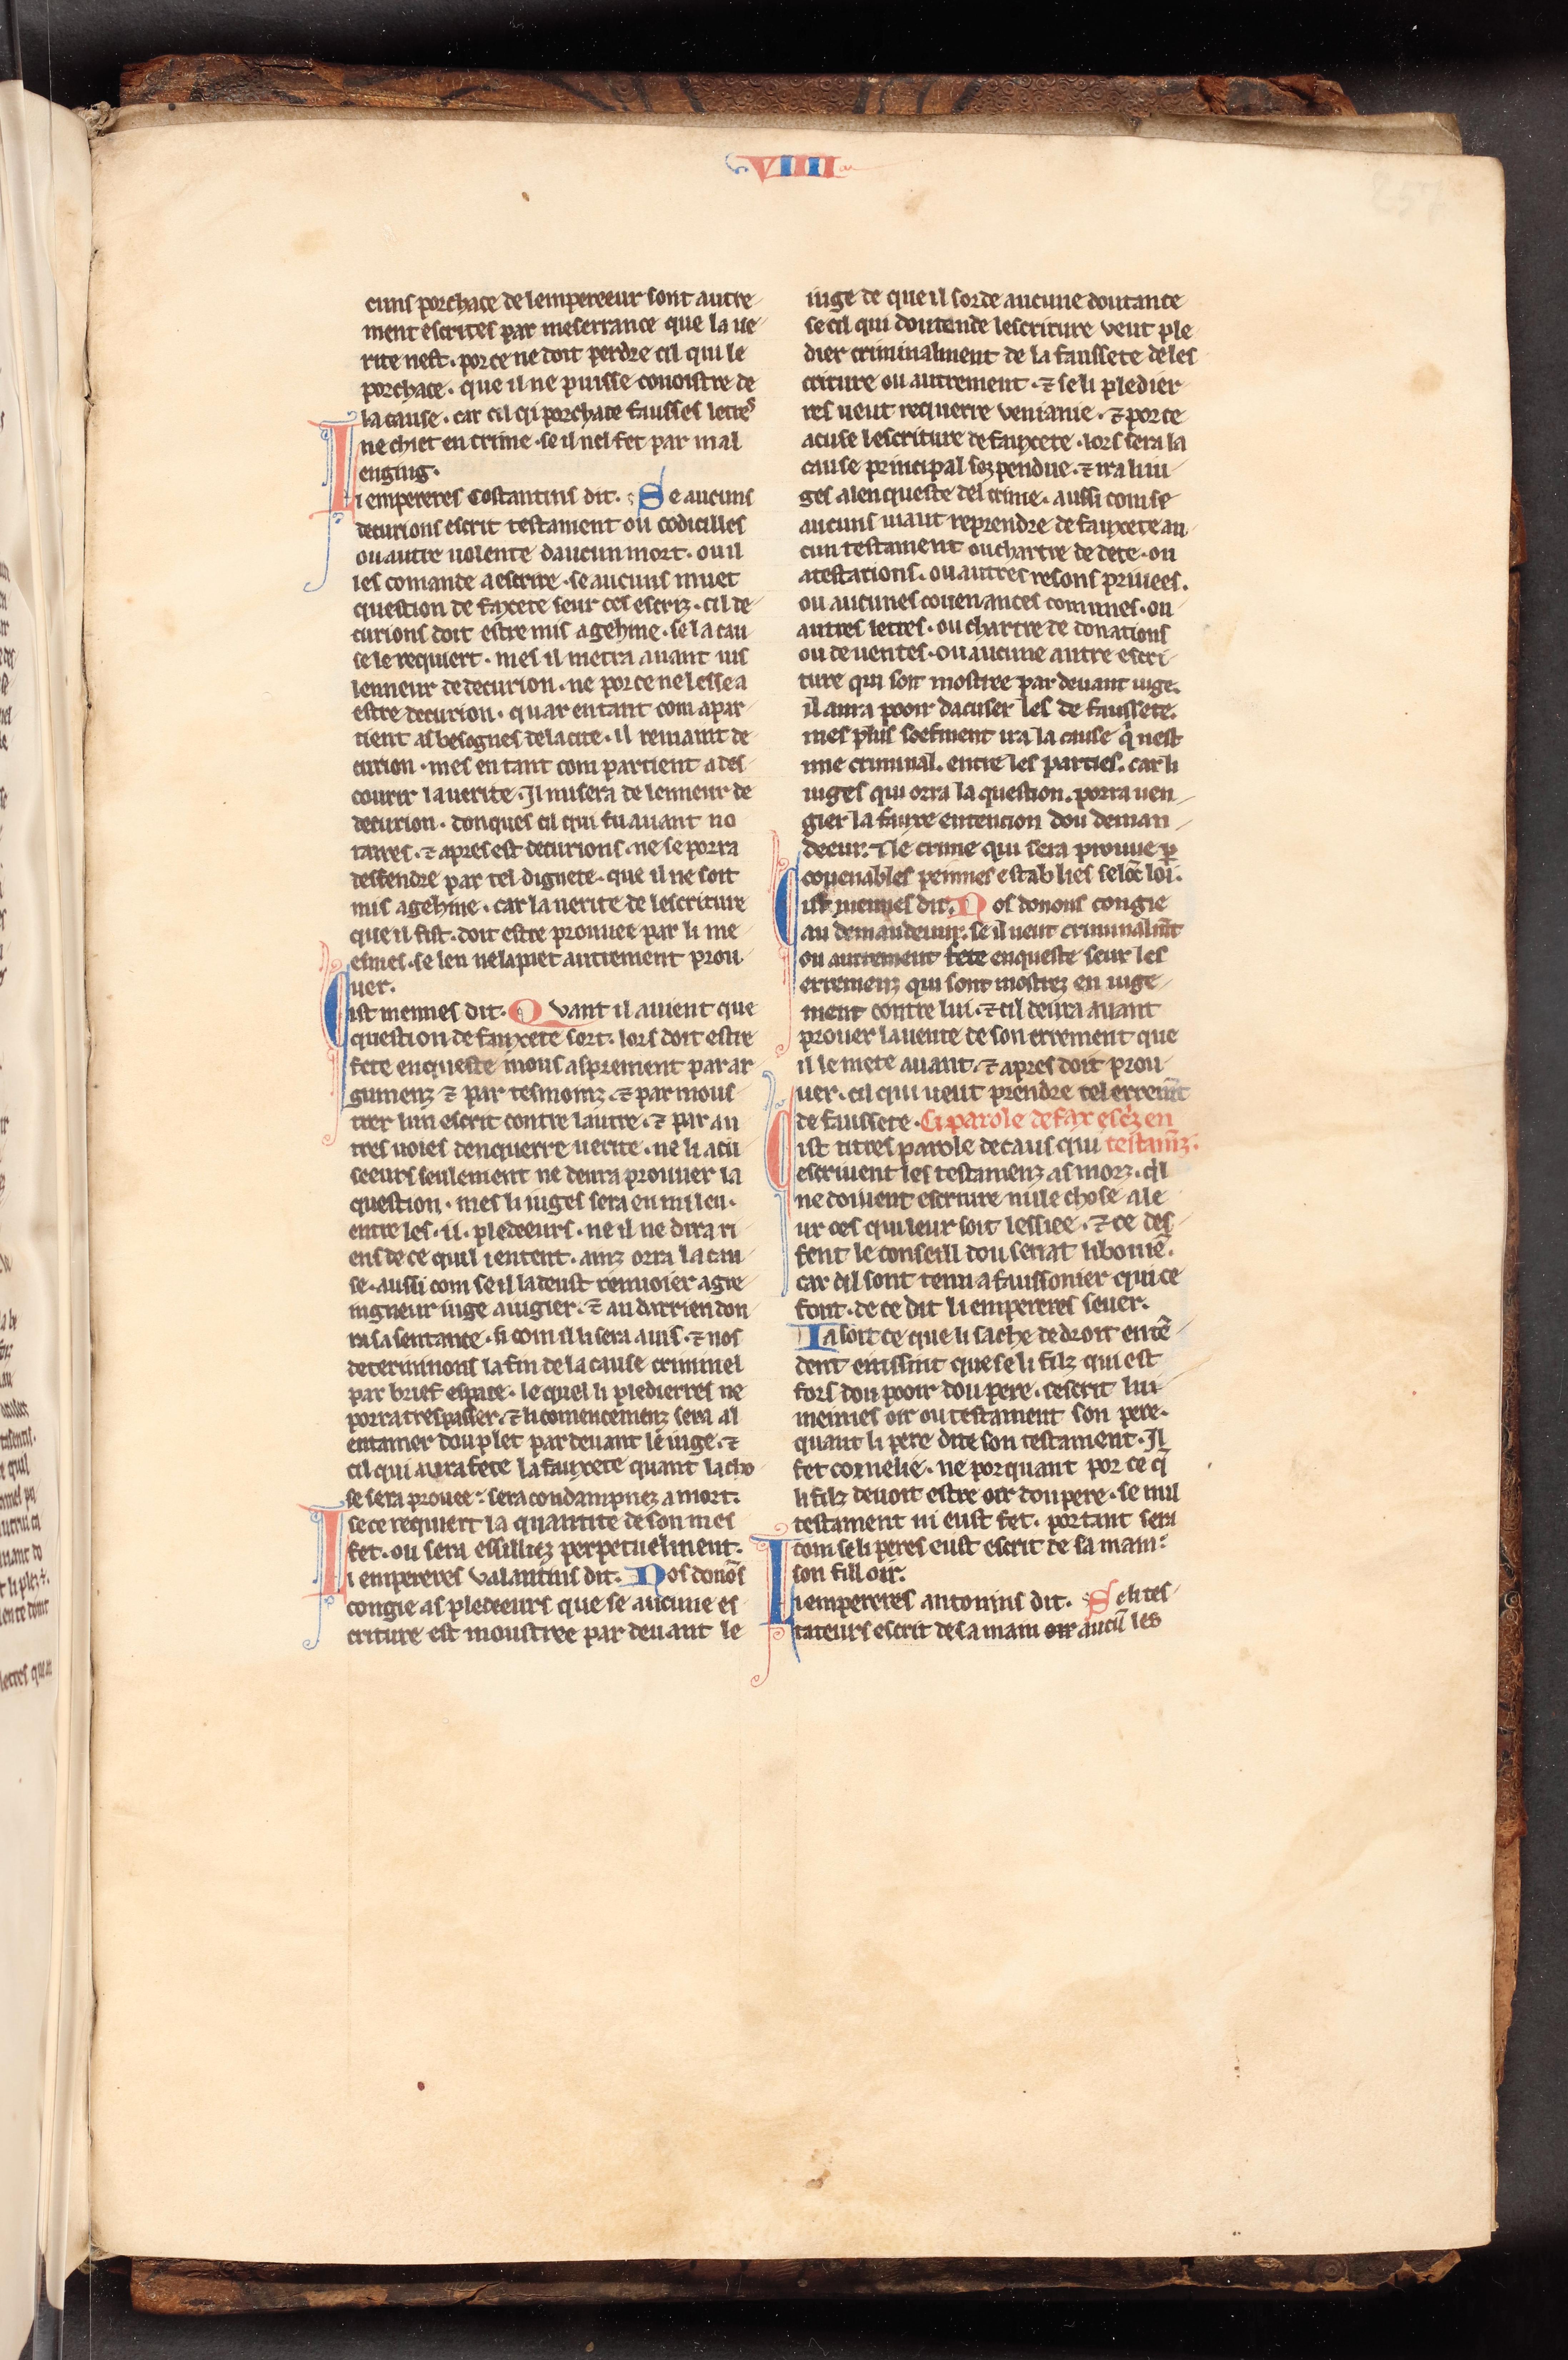 VIIII
257
cuns porchace de lempereeur sont autre
ment escrites par meserrance que la ue
rite nest . por ce ne doit perdre cil qui le
porchace . que il ne puisse conoistre de
la cause . car cil qi porchace fausses lettres
ne chiet en crime . se il nel fet par mal
enging .
Li empereres Costantins dit . Se aucuns
decurions escrit testament ou codicilles
ou autre uolente daucun mort . ou il
les comande a escrire . se aucuns muet
question de faxete seur ces escriz . cil de
curions doit estre mis a gehine . se la cau
se le requiert . mes il metra auant ius
lenneur de decurion . ne por ce ne lesse a
estre decurion . quar en tant com apar
tient as besognes de la cite . il remaint de
curion . mes en tant com partient a des
courir la uerite . Il nusera de lenneur de
decurion . donques cil qui fu auant no
taires . ⁊ apres est decurions . ne se porra
deffendre par tel dignete . que il ne soit
mis a gehine . car la uerite de lescriture
que il fist . doit estre prouuee par li me
eimes . se len ne la puet autrement prou
uer .
Cist meimes dit . Quant il auient que
question de fauxete sort . lors doit estre
fete enqueste mout asprement par ar
gumenz ⁊ par tesmoinz . ⁊ par mous
trer lun escrit contre lautre . ⁊ par au
tres uoies denquerre uerite . ne li acu
seeurs seulement ne deura prouuer la
question . mes li iuges sera en mi leu .
entre les . ii . pledeeurs . ne il ne dira ri
ens de ce quil i entent . ainz orra la cau
se . aussi com se il la deust renuoier a gre
ingneur iuge a iugier . ⁊ au darrien don
ra sa sentance . si com il li sera auis . ⁊ nos
determinons la fin de la cause criminel
par brief espace . le quel li pledierres ne
porra trespasser . ⁊ li comencemenz sera al
entamer dou plet par deuant le iuge . ⁊
cil qui aura fete la fauxete quant la cho
se sera prouee . sera condampnez a mort .
se ce requiert la quantite de son mes
fet . ou sera essilliez perpetuelment .
Li empereres Valantins dit . Nos donons
congie as pledeeurs que se aucune es
criture est moustree par deuant le
iuge de que il sorde aucune doutance
se cil qui doutende lescriture veut ple
dier criminalment de la faussete de les
criture ou autrement . ⁊ se li pledier
res ueut requerre veniance . ⁊ por ce
acuse lescriture de fauxete . lors sera la
cause principal sozpendue . ⁊ ira li iu
ges a lenqueste del crime . aussi com se
aucuns uiaut reprendre de fauxete au
cun testament ou chartre de dete . ou
atestations . ou autres resons priuees .
ou aucunes couenances comunes . ou
autres lettres . ou chartre de donations
ou de uentes . ou aucune autre escri
ture qui soit mostree par deuant iuge .
il aura pooir dacuser les de faussete .
mes plus soefment ira la cause qi nest
mie criminal . entre les parties . car li
iuges qui orra la question . porra uen
gier la fauxe entencion dou deman
deeur . ⁊ le crime qui sera prouue par
couenables peinnes establies selonc loi .
Cist meimes dit . Nos donons congie
au demandeeur . se il ueut criminalment
ou autrement fere enqueste seur les
erremenz qui sont mostrez en iuge
ment contre lui . ⁊ cil deura auant
prouer la uerite de son errement que
il le mete auant . ⁊ apres doit prou
uer . cil qui ueut prendre tel errement
de faussete . Ci parole de fax escriz en
Cist titres parole de caus qui testamenz .
escriuent les testamenz as morz . qil
ne doiuent escriture nule chose a le
ur oes qui leur soit lessiee . ⁊ ce def
fent le conseill dou senat libonien .
car cil sont tenu a faussonier qui ce
font . de ce dit li empereres seuer .
Ia soit ce que li sache de droit enten
dent einssint que se li filz qui est
fors dou pooir dou pere . sescrit lui
meimes oir ou testament son pere .
quant li pere dite son testament . Il
fet cornelie . ne porquant por ce que
li filz deuoit estre oir dou pere . se nul
testament ni eust fet . por tant sera
com se li peres eust escrit de sa main
son fill oir .
Li empereres antonins dit . Se li tes
tateurs escrit de sa main oir aucun les